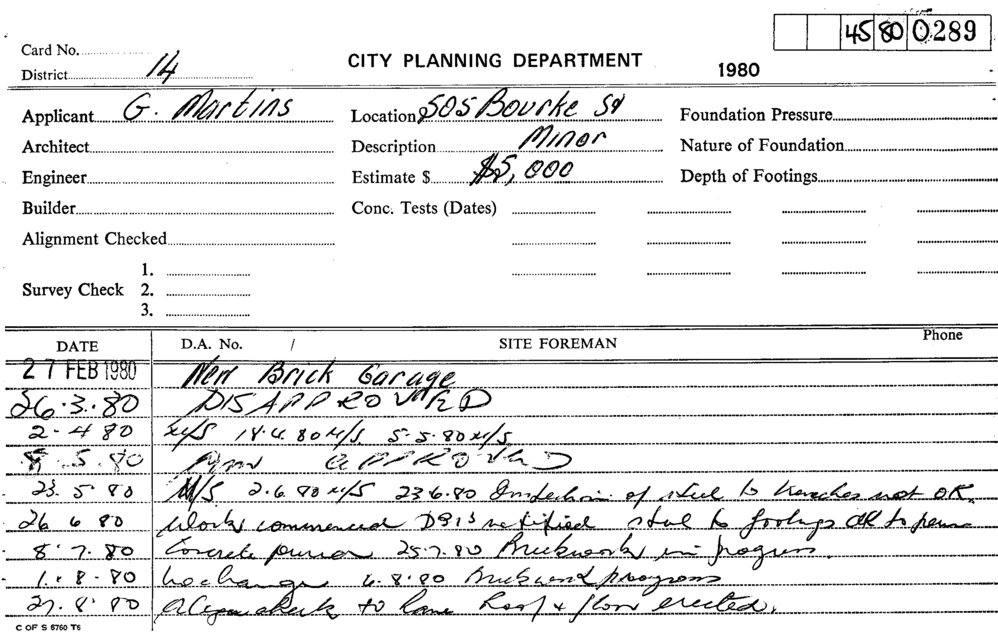 45 80 0289
Card No.
CITY PLANNING DEPARTMENT
1980
District 14
Applicant G. Martins Location 505 Bourke St Foundation Pressure
Architect Description Minor Nature of Foundation
Engineer Estimate $ $5,000 Depth of Footings
Builder Conc. Tests (Dates)
Alignment Checked
1.
Survey Check 2.
3.
DATE D.A. No. / SITE FOREMAN Phone
27 FEB 1980 New Brick Garage
26.3.80 DISAPPROVED
2-4 80 N/S 18.4.80 N/S 5-5.80 N/S
8.5.80 APPROVED
23.5 80 N/S 2.6.80 N/S 23 6.80 Inspection of steel to trenches not OK.
26 6 80 Work commenced notified steel to footings OK to
8.7.80 Concrete 25.7.80 Brickwork in progress.
1.8-80 No change 6.8.80 Brickwork progress
27.8.80 check to lane Roof & floor erected.
C OF S 6760 T6